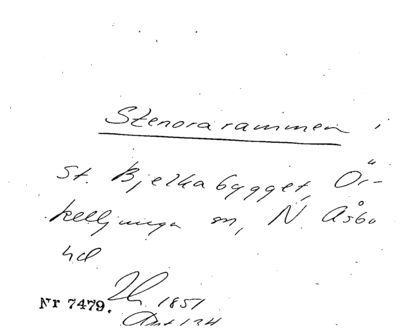 Stenorarammen i
St. Bjelkabygget, Ör-
kelljunga sn, N. Åsbo
hd
1851
Nr 7479.